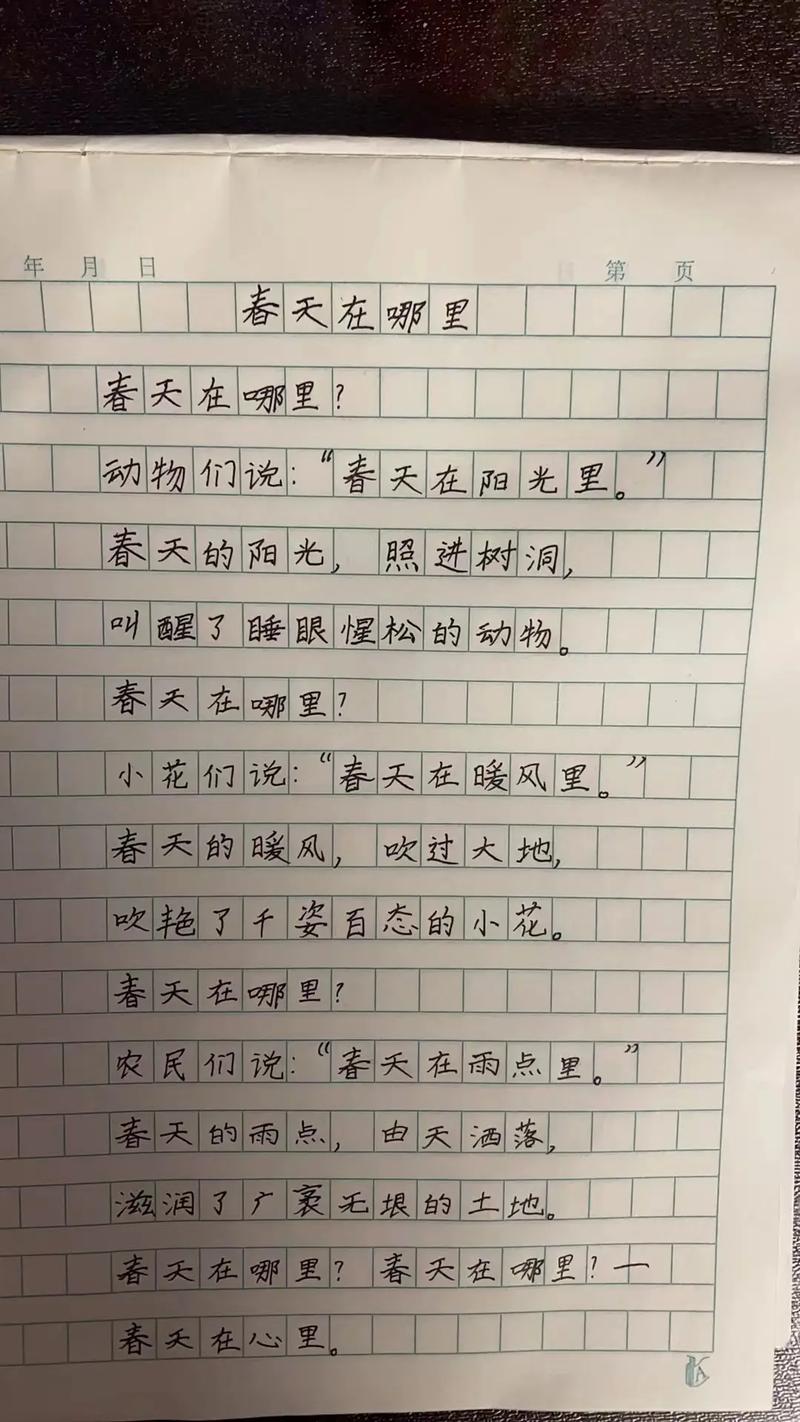 年 月 日 第 页
春天在哪里
春天在哪里?
动物们说:“春天在阳光里。”
春天的阳光,照进树洞,
叫醒了睡眼惺松的动物。
春天在哪里?
小花们说:“春天在暖风里。”
春天的暖风,吹过大地,
吹艳了千姿百态的小花。
春天在哪里?
农民们说:“春天在雨点里。”
春天的雨点,由天洒落,
滋润了广袤无垠的土地。
春天在哪里?春天在哪里?一
春天在心里。